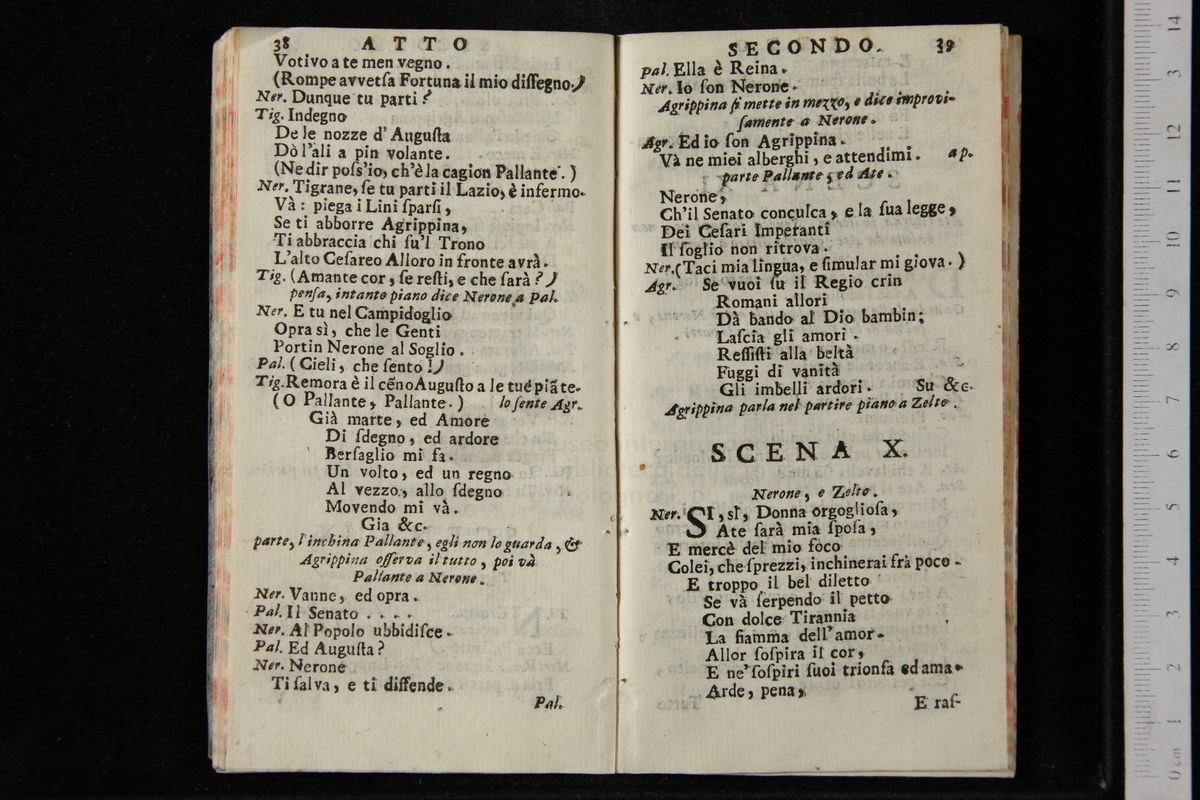 38 ATTO
Votivo a te men vegno.
(Rompe avvetſa Fortuna il mio diſſegno.)
Ner. Dunque tu parti?
Tig. Indegno
De le nozze d'Auguſta
Dò l'ali a pin volante.
(Ne dir poſs'io, ch'è la cagion Pallante.)
Ner. Tigrane, ſe tu parti il Lazio, è infermo.
Và: piega i Lini ſparſi,
Se ti abborre Agrippina,
Ti abbraccia chi ſu'l Trono
L'alto Ceſareo Alloro in fronte avrà.
Tig. (Amante cor, ſe reſti, e che ſarà?)
penſa, intanto piano dice Nerone a Pal.
Ner. E tu nel Campidoglio
Opra sì, che le Genti
Portin Nerone al Soglio.
Pal. (Cieli, che ſento!)
Tig. Remora è il cẽno Auguſto a le tué piãte.
(O Pallante, Pallante.) lo ſente Agr.
Già marte, ed Amore
Di ſdegno, ed ardore
Berſaglio mi fa.
Un volto, ed un regno
Al vezzo, allo ſdegno
Movendo mi và.
Gia &c.
parte, l'inchina Pallante, egli non lo guarda, &
Agrippina oſſerva il tutto, poi và
Pallante a Nerone.
Ner. Vanne, ed opra.
Pal. Il Senato . . . .
Ner. Al Popolo ubbidiſce.
Pal. Ed Auguſta?
Ner. Nerone
Ti ſalva, e ti diffende.
Pal.
SECONDO. 39
Pal. Ella è Reina.
Ner. Io ſon Nerone.
Agrippina ſi mette in mezzo, e dice improvi-
ſamente a Nerone.
Agr. Ed io ſon Agrippina.
Và ne miei alberghi, e attendimi. a p.
parte Pallante, ed Ate.
Nerone,
Ch'il Senato conculca, e la ſua legge,
Dei Ceſari Imperanti
Il ſoglio non ritrova.
Ner. (Taci mia lingua, e ſimular mi giova.)
Agr. Se vuoi ſu il Regio crin
Romani allori
Dà bando al Dio bambin;
Laſcia gli amori.
Reſſiſti alla beltà
Fuggi di vanità
Gli imbelli ardori. Su &c.
Agrippina parla nel partire piano a Zelto.
SCENA X.
Nerone, e Zelto.
Ner. SI, sì, Donna orgoglioſa,
Ate ſarà mia ſpoſa,
E mercè del mio foco
Colei, che ſprezzi, inchinerai frà poco.
E troppo il bel diletto
Se và ſerpendo il petto
Con dolce Tirannia
La fiamma dell'amor.
Allor ſoſpira il cor,
E ne'ſoſpiri ſuoi trionfa ed ama.
Arde, pena,
E raſ-